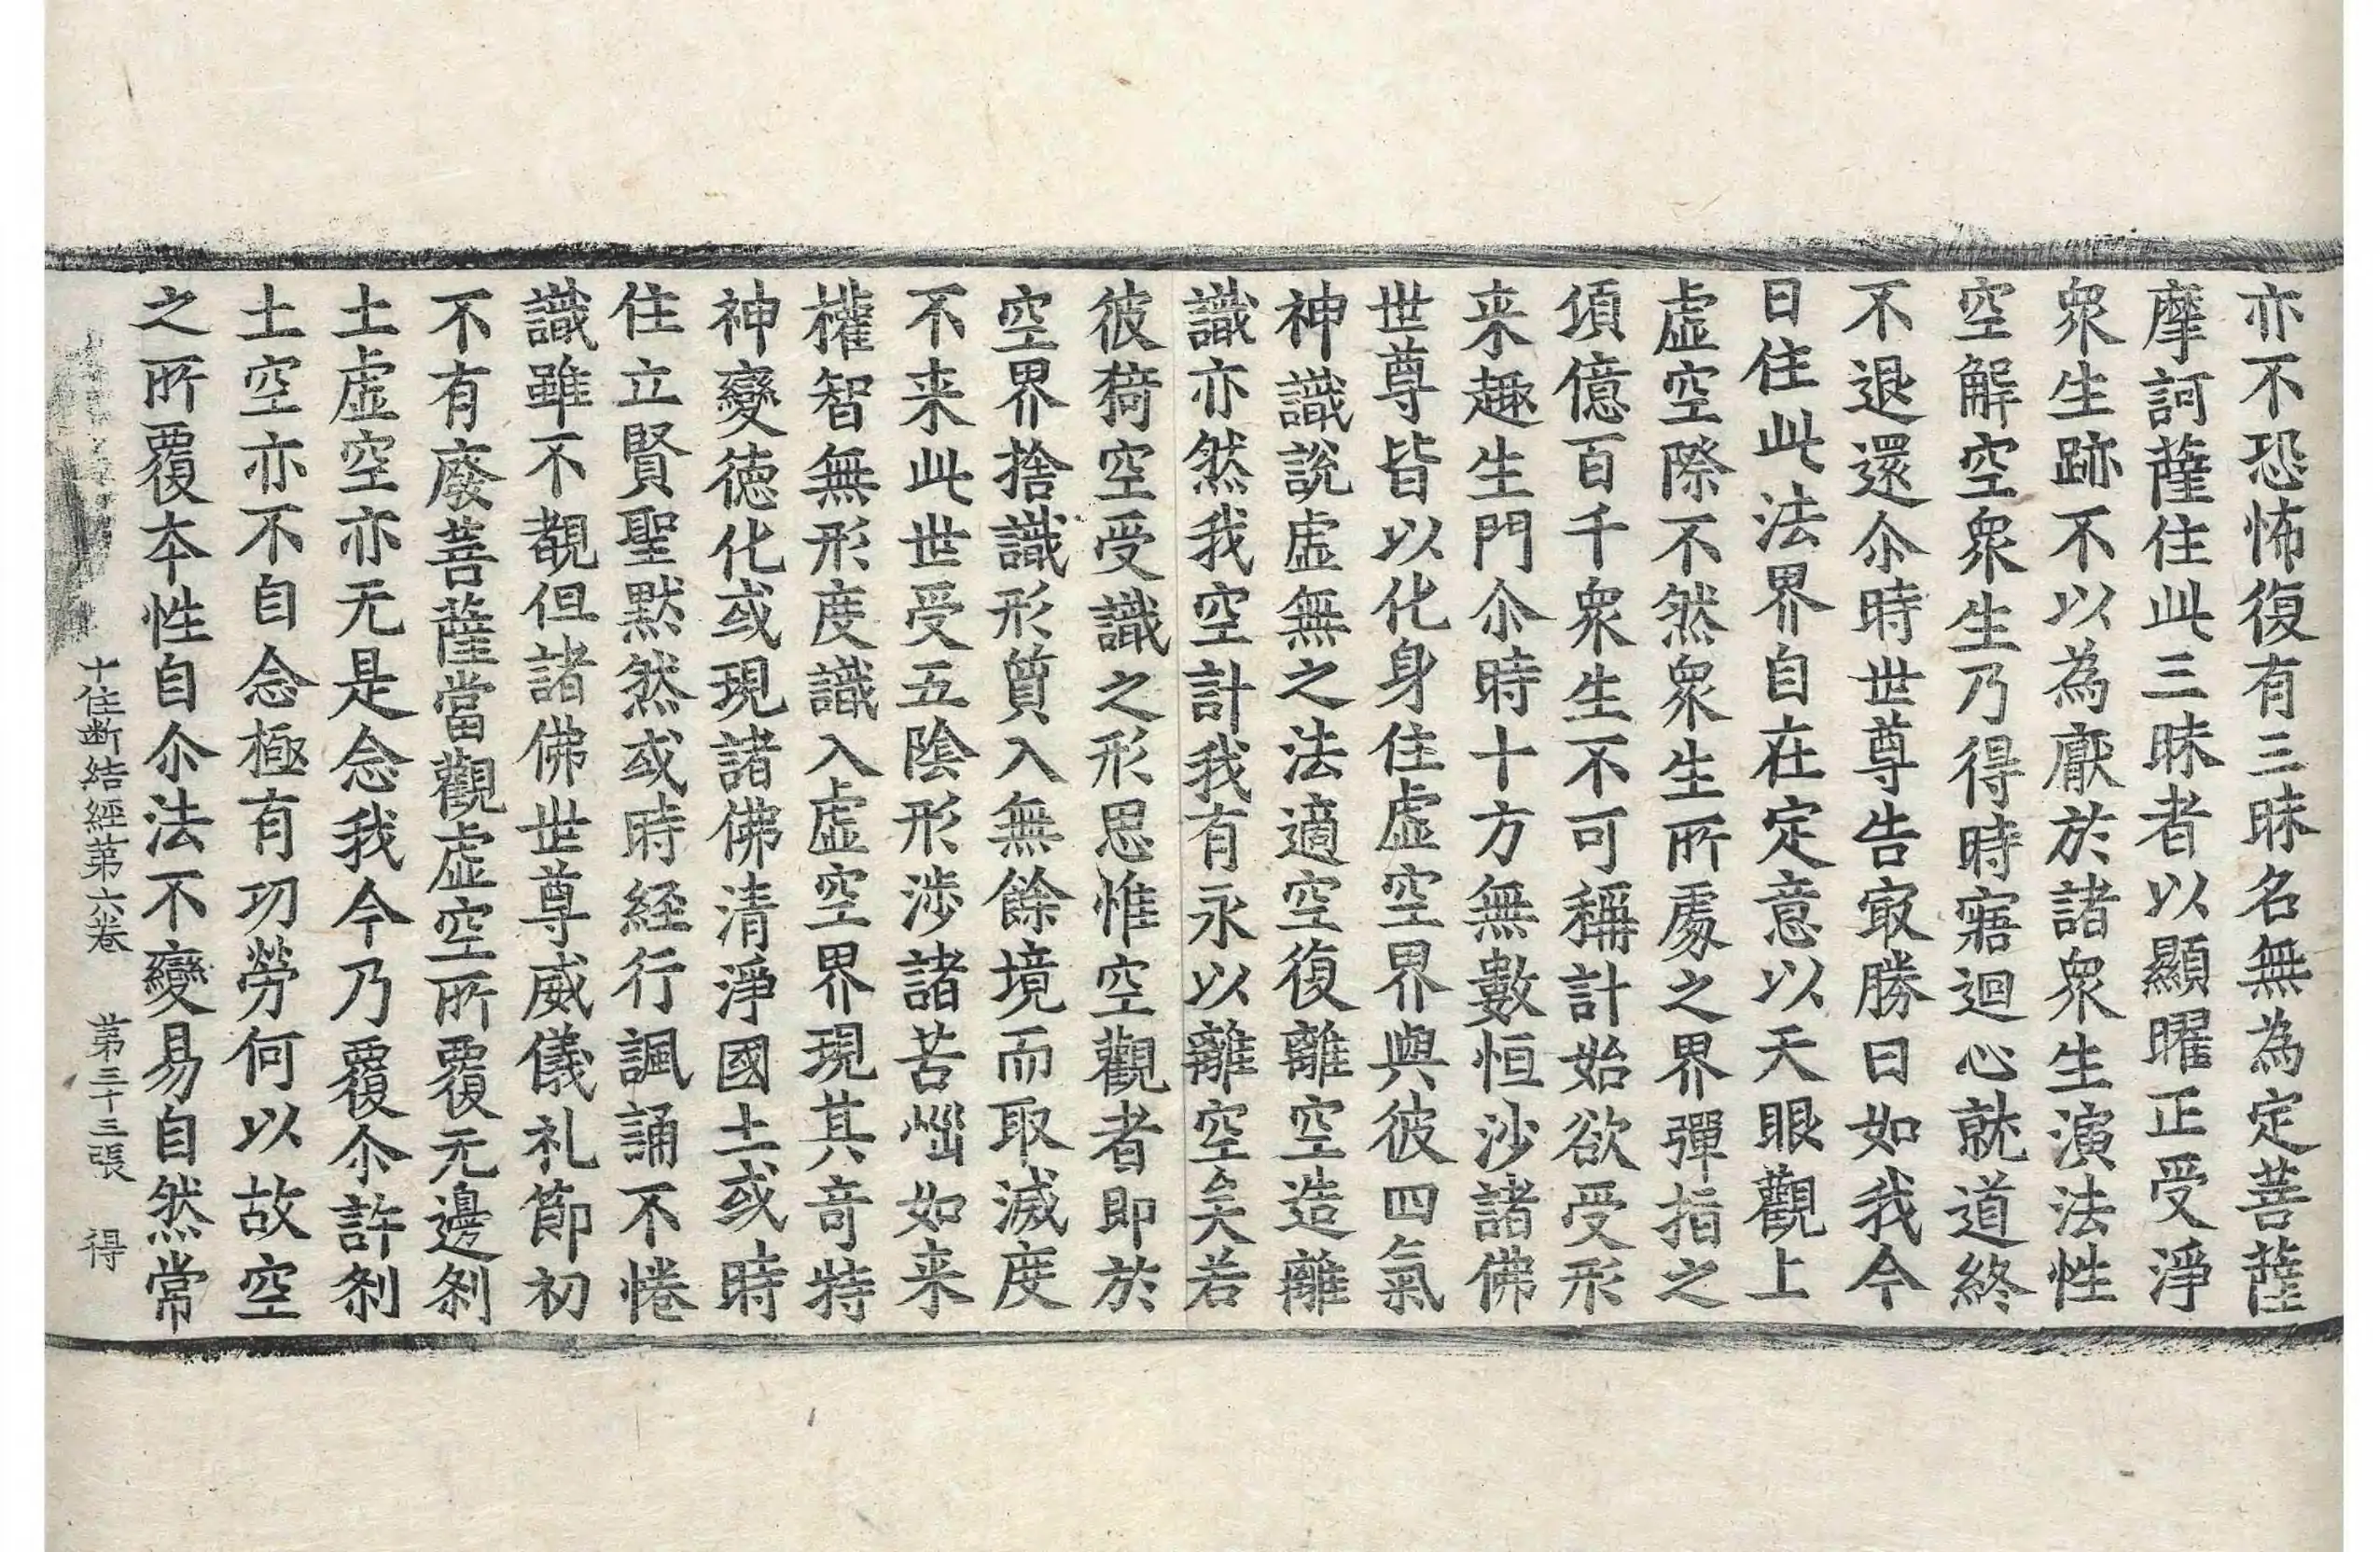 亦不恐怖復有三昧名無為定菩薩
摩訶薩住此三昧者以顯曜正受淨
衆生跡不以為厭於諸衆生演法性
空解空衆生乃得時寤迴心就道終
不退還尒時世尊告㝡勝曰如我今
日住此法界自在定意以天眼觀上
虚空際不然衆生所處之界彈指之
頃億百千衆生不可稱計始欲受形
来趣生門尒時十方無數恒沙諸佛
世尊皆以化身住虚空界與彼四氣
神識說虚無之法適空復離空造離
識亦然我空計我有永以離空矣若
彼猗空受識之形思惟空觀者即於
空界捨識形質入無餘境而取滅度
不来此世受五陰形涉諸苦惱如来
權智無形度識入虚空界現其奇特
神變德化或現諸佛清淨國土或時
住立賢聖默然或時経行諷誦不惓
識雖不覩但諸佛世尊威儀礼節初
不有廢菩薩當觀虚空所覆无邊刹
土虚空亦无是念我今乃覆尒許刹
土空亦不自念極有㓛勞何以故空
之所覆本性自尒法不變易自然常
十住断結經第六卷 第三十三張 得